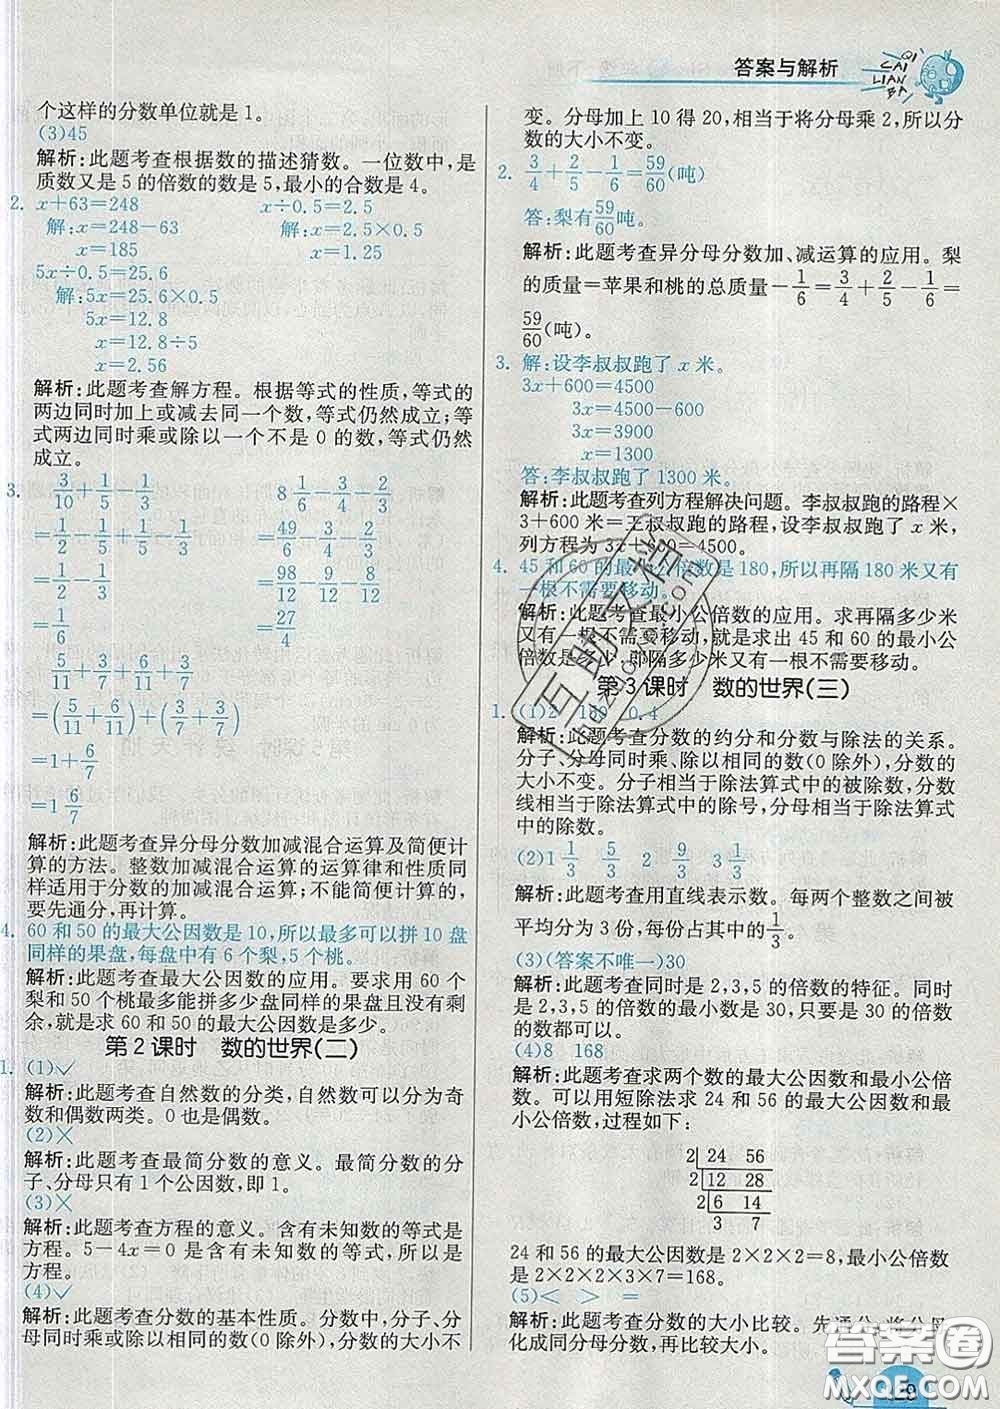 答案与解析
QI CAI LIAN BA
个这样的分数单位就是1。
(3)45
解析:此题考查根据数的描述猜数。一位数中,是
质数又是5的倍数的数是5,最小的合数是4。
2. x+63=248 x÷0.5=2.5
解:x=248-63 解:x=2.5×0.5
x=185 x=1.25
5x÷0.5=25.6
解:5x=25.6×0.5
5x=12.8
x=12.8÷5
x=2.56
解析:此题考查解方程。根据等式的性质,等式的
两边同时加上或减去同一个数,等式仍然成立;等
式两边同时乘或除以一个不是0的数,等式仍然
成立。
3. 3/10+1/5-1/3 8 1/6-3/4-2/3
=1/2-1/5+1/5-1/3 =49/6-3/4-2/3
=1/2-1/3 =98/12-9/12-8/12
=1/6 =27/4
5/11+3/7+6/11+3/7
=(5/11+6/11)+(3/7+3/7)
=1+6/7
=1 6/7
解析:此题考查异分母分数加减混合运算及简便计
算的方法。整数加减混合运算的运算律和性质同
样适用于分数的加减混合运算;不能简便计算的,
要先通分,再计算。
4. 60和50的最大公因数是10,所以最多可以拼10盘
同样的果盘,每盘中有6个梨,5个桃。
解析:此题考查最大公因数的应用。要求用60个
梨和50个桃最多能拼多少盘同样的果盘且没有剩
余,就是求60和50的最大公因数是多少。
第2课时 数的世界(二)
1. (1)✓
解析:此题考查自然数的分类,自然数可以分为奇
数和偶数两类。0也是偶数。
(2)×
解析:此题考查最简分数的意义。最简分数的分
子、分母只有1个公因数,即1。
(3)×
解析:此题考查方程的意义。含有未知数的等式是
方程。5-4x=0是含有未知数的等式,所以
是方程。
(4)✓
解析:此题考查分数的基本性质。分数中,分子、分
母同时乘或除以相同的数(0除外),分数的大小不
变。分母加上10得20,相当于将分母乘2,所以分
数的大小不变。
2. 3/4+2/5-1/6=59/60(吨)
答:梨有59/60吨。
解析:此题考查异分母分数加、减运算的应用。梨
的质量=苹果和桃的总质量-1/6=3/4+2/5-1/6=
59/60(吨)。
3. 解:设李叔叔跑了x米。
3x+600=4500
3x=4500-600
3x=3900
x=1300
答:李叔叔跑了1300米。
解析:此题考查列方程解决问题。李叔叔跑的路程×
3+600米=王叔叔跑的路程,设李叔叔跑了x米,
列方程为3x+600=4500。
4. 45和60的最小公倍数是180,所以再隔180米又有
一根不需要移动。
解析:此题考查最小公倍数的应用。求再隔多少米
又有一根不需要移动,就是求出45和60的最小公
倍数是多少,即隔多少米又有一根不需要移动。
第3课时 数的世界(三)
1. (1)2 0.4
解析:此题考查分数的约分和分数与除法的关系。
分子、分母同时乘、除以相同的数(0除外),分数
的大小不变。分子相当于除法算式中的被除数,分数
线相当于除法算式中的除号,分母相当于除法算式
中的除数。
(2)1 1/3 5/3 2 9/3 3 1/3
解析:此题考查用直线表示数。每两个整数之间被
平均分为3份,每份占其中的1/3。
(3)(答案不唯一)30
解析:此题考查同时是2,3,5的倍数的特征。同时
是2,3,5的倍数的最小数是30,只要是30的倍数
的数都可以。
(4)8 168
解析:此题考查求两个数的最大公因数和最小公倍
数。可以用短除法求24和56的最大公因数和最
小公倍数,过程如下:
2 24 56
2 12 28
2 6 14
3 7
24和56的最大公因数是2×2×2=8,最小公倍数
是2×2×2×3×7=168。
(5)< > =
解析:此题考查分数的大小比较。先通分,将分母
化成同分母分数,再比较大小。
互助文档
huzhuwd.com
答案圈
MXQE.COM